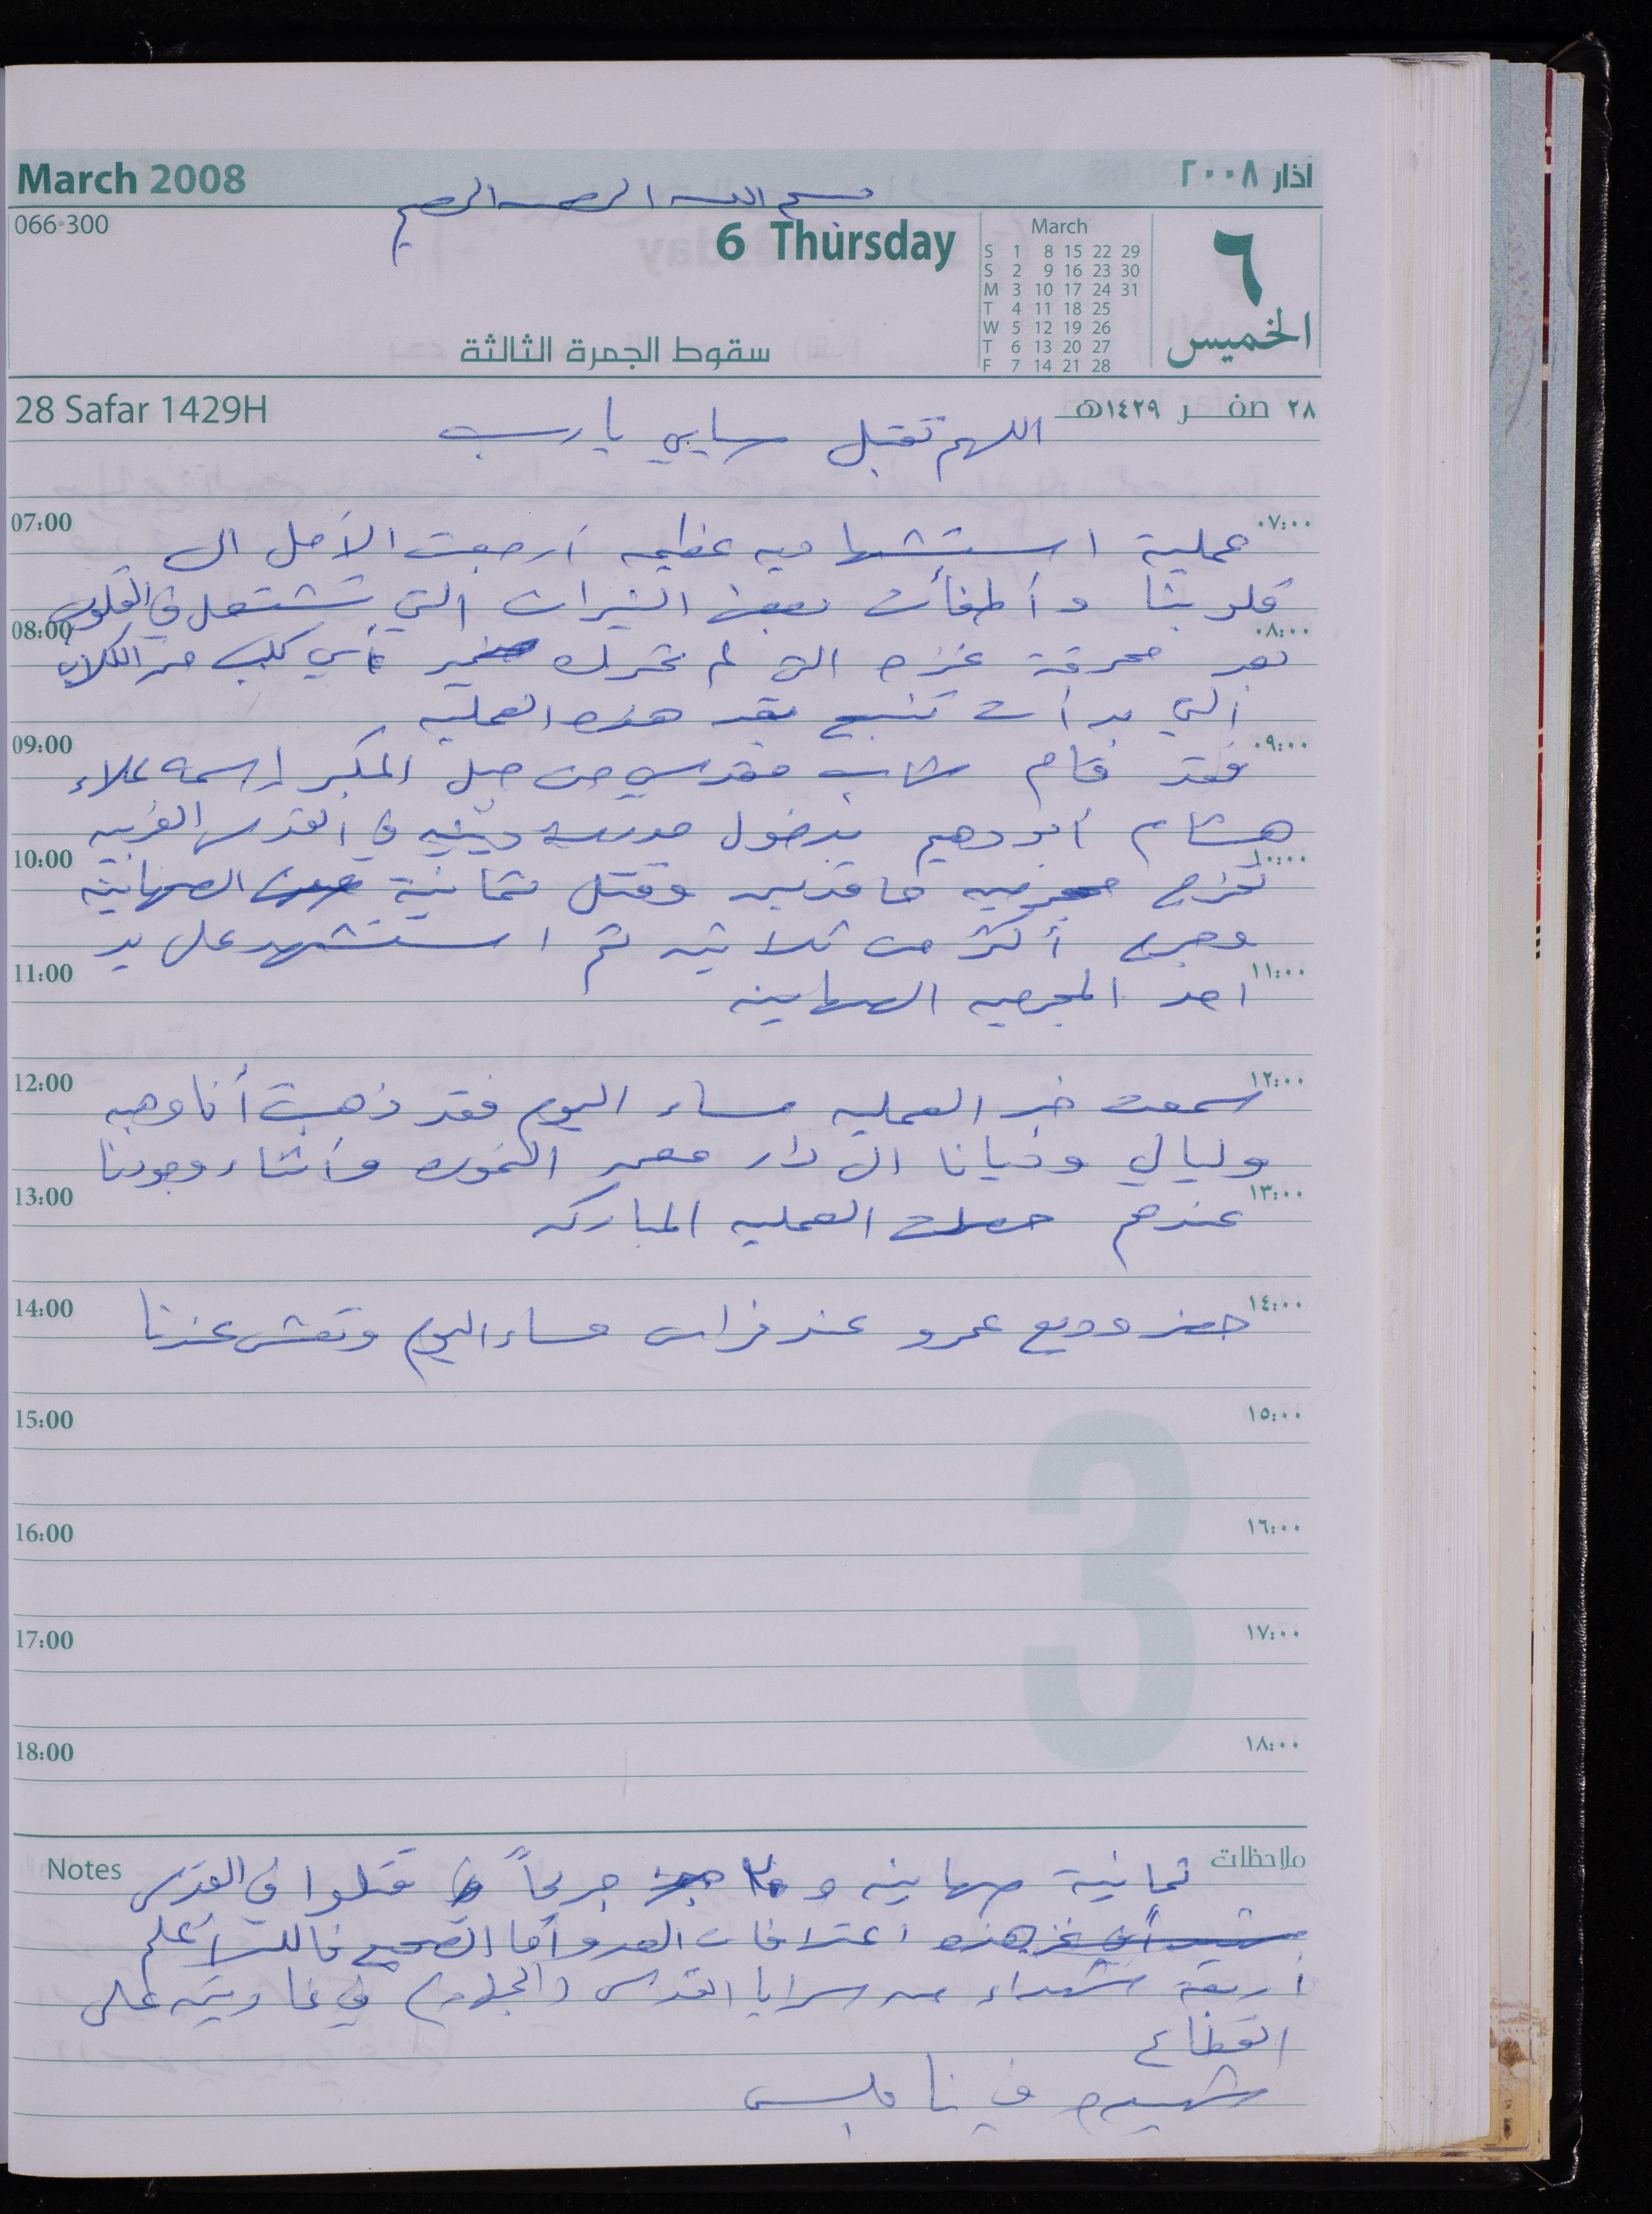 March 2008
آذار ٢٠٠٨
بسم الله الرحمن الرحيم
066-300
6 Thursday
March
S 1 8 15 22 29
S 2 9 16 23 30
M 3 10 17 24 31
T 4 11 18 25
W 5 12 19 26
T 6 13 20 27
F 7 14 21 28
٦
الخميس
سقوط الجمرة الثالثة
28 Safar 1429H
٢٨ صفر ١٤٢٩هـ
اللهم تقبل يا رب
07:00 ٠٧:٠٠
عملية استشهاديه عظيمه أرجعت الأمل الى
قلوبنا وأطفأت بعض النيران التي تشتعل في القلوب
08:00 ٠٨:٠٠
بعد محرقة غزه التي لم تحرك ضمير أي كلب من الكلاب
التي بدأت تنبح بعد هذه العمليه
09:00 ٠٩:٠٠
فقد قام شاب مقدسي من جبل المكبر اسمه علاء
هشام أبو دهيم بدخول مدرسة دينيه في القدس الغربيه
10:00 ١٠:٠٠
تخرج مجرمين حاقدين وقتل ثمانية من الصهاينه
وجرح أكثر من ثلاثين ثم استشهد على يد
11:00 ١١:٠٠
احد المجرمين الصهاينه
12:00 ١٢:٠٠
سمعت خبر العمليه مساء اليوم فقد ذهبت أنا وهبه
وليالي ودَيانا الى دار معمر وأثناء وجودنا
13:00 ١٣:٠٠
عندهم حصلت العمليه المباركه
14:00 ١٤:٠٠
حضر وديع عمرو عند فراس مساء اليوم وتعشى عندنا
15:00 ١٥:٠٠
16:00 ١٦:٠٠
3
17:00 ١٧:٠٠
18:00 ١٨:٠٠
Notes ملاحظات
ثمانية صهاينه و جريحاً قتلوا في القدس
هذه اعترافات العدو أما الصحيح فالله أعلم
أربعة شهداء من سرايا القدس (الجهاد) في غارتين على
القطاع
شهيد في نابلس